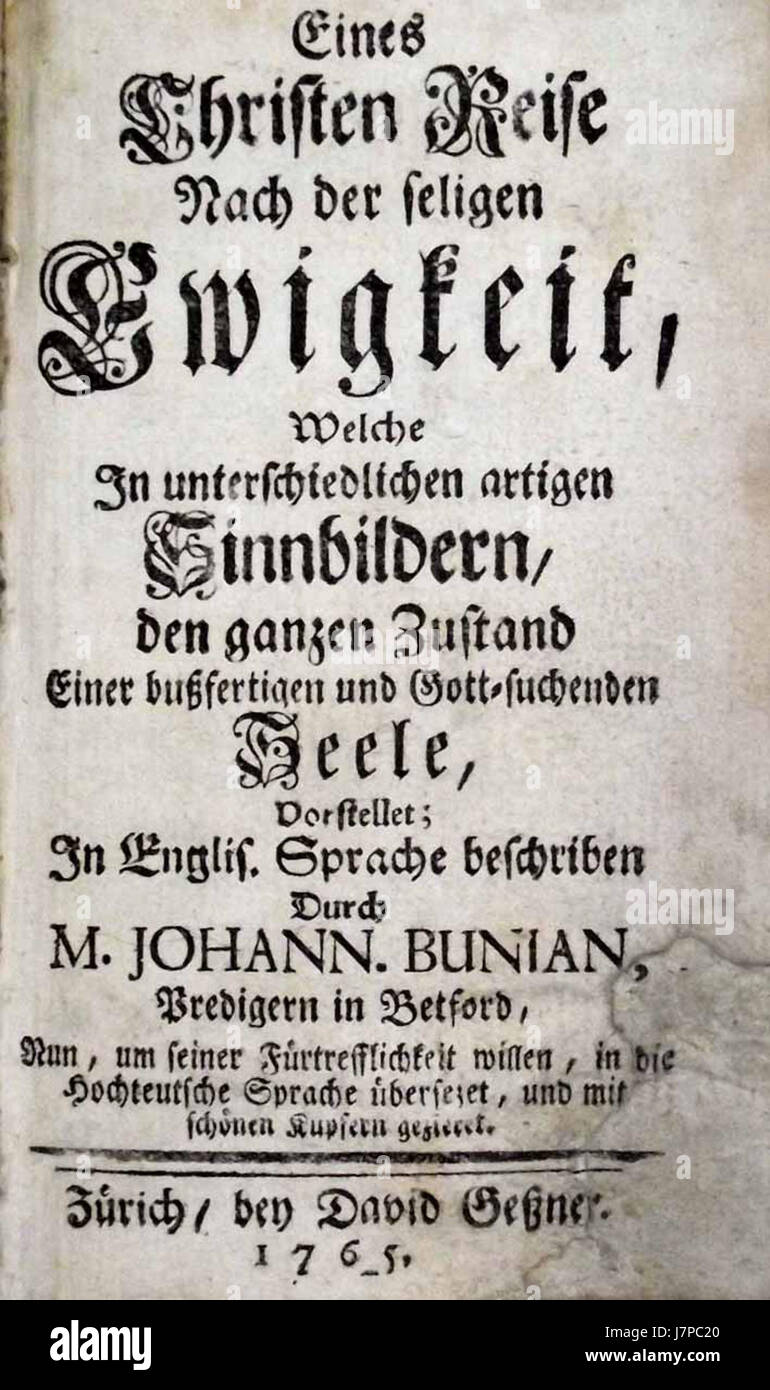 Eines
Christen Reise
Nach der seligen
Ewigkeit,
Welche
In unterschiedlichen artigen
Sinnbildern/
den ganzen Zustand
Einer bußfertigen und Gott-suchenden
Seele,
Vorstellet;
In Englis. Sprache beschriben
Durch
M. JOHANN. BUNIAN,
Predigern in Betford,
Nun, um seiner Fürtrefflichkeit willen, in die
Hochteutsche Sprache übersezet, und mit
schönen Kupfern gezieret.
Zürich/ bey David Geßner.
1765.
alamy
a
alamy
a
a
alamy
a
a
alamy
Image ID: J7PC20
www.alamy.com